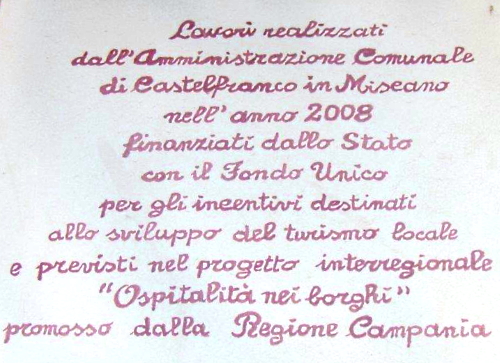 Lavori realizzati
dall'Amministrazione Comunale
di Castelfranco in Miscano
nell'anno 2008
finanziati dallo Stato
con il Fondo Unico
per gli incentivi destinati
allo sviluppo del turismo locale
e previsti nel progetto interregionale
"Ospitalità nei borghi"
promosso dalla Regione Campania